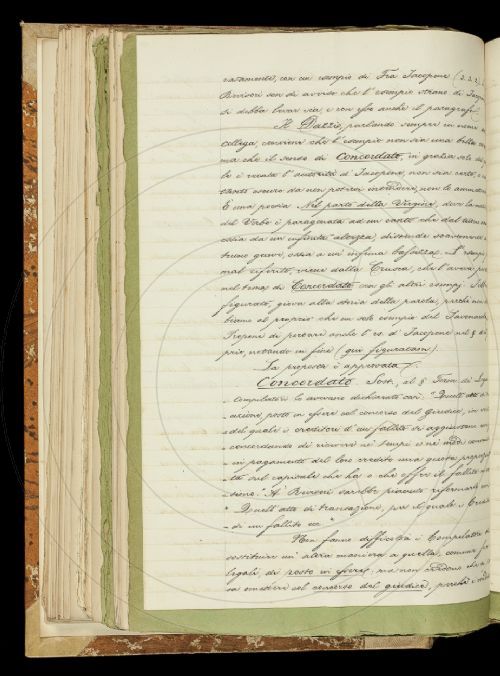 ratamente, con un esempio di Fra Jacopone (2. 2. 2
Revisori son di avviso che l'esempio strano di Jacop
si debba levar via, e con esso anche il paragrafo.
Il Dazzi, parlando sempre in nome
collega, conviene che l'esempio non sia una bella
ma che il senso di Concordato, in grazia solo del
lo è recata l'autorità di Jacopone, non sia certo, o
tanto oscuro da non potersi intendere, non lo ammette
È una poesia Nel parto della Vergine, dove la
del Verbo è paragonata ad un canto che dal
ossia da un'infinita altezza, discende soavemente
tuono grave, ossia a un'infima bassezza. L'esempio
mal riferito, viene dalla Crusca, che l'aveva
nel tema di Concordato con gli altri esempj.
figurato, giova alla storia della parola, perchè non
biamo al proprio che un solo esempio del
Propone di porre anche l'es. d'Jacopone nel §
prio, notando in fine (qui figuratam).
La proposta è approvata.
Concordato. Sost., al § Term. di Leg
Compilatori lo avevano dichiarato così: "Quell'atto
azione, posto in essere col concorso del Giudice, in
del quale i creditori d'un fallito si aggiustano
concordando di ricevere ne' tempi e ne' modi
in pagamento del loro credito una quota
ta sul capitale che ha o che offre il fallito
sieno." Al Revisori sarebbe piaciuto riformarlo
"Quell'atto di transazione, per il quale i Credi
di un fallito ec."
Non fanno difficoltà i Compilatori
sostituire un'altra maniera a quella, comune
legali, di posto in essere; ma non credono che
sa omettere col concorso del giudice, perchè